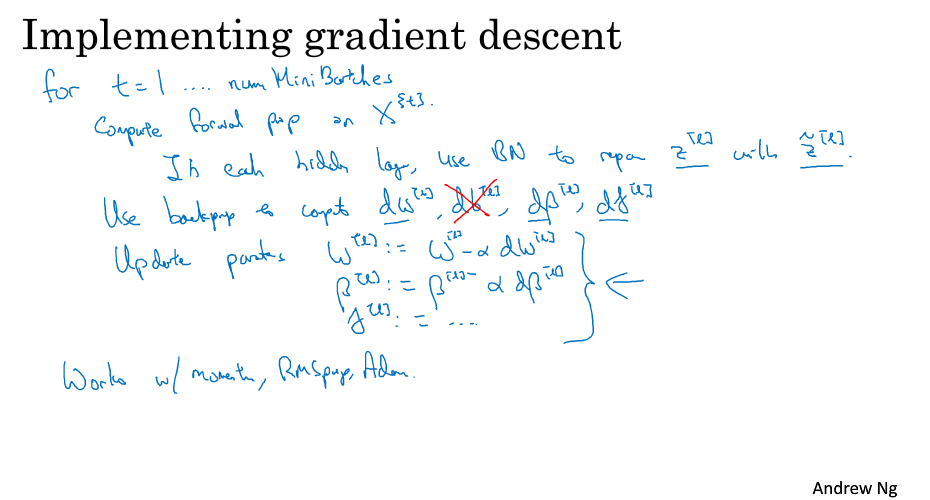 Implementing gradient descent
for t = 1 .... num Mini Batches
Compute forward prop on X^{t}.
In each hidden layer, use BN to repar z^[l] with z̃^[l].
Use backprop to compute dw^[l], db^[l], dβ^[l], dγ^[l]
Update parameters w^[l] := w^[l] - α dw^[l]
β^[l] := β^[l] - α dβ^[l]
γ^[l] := ....
Works w/ momentum, RMSprop, Adam.
Andrew Ng